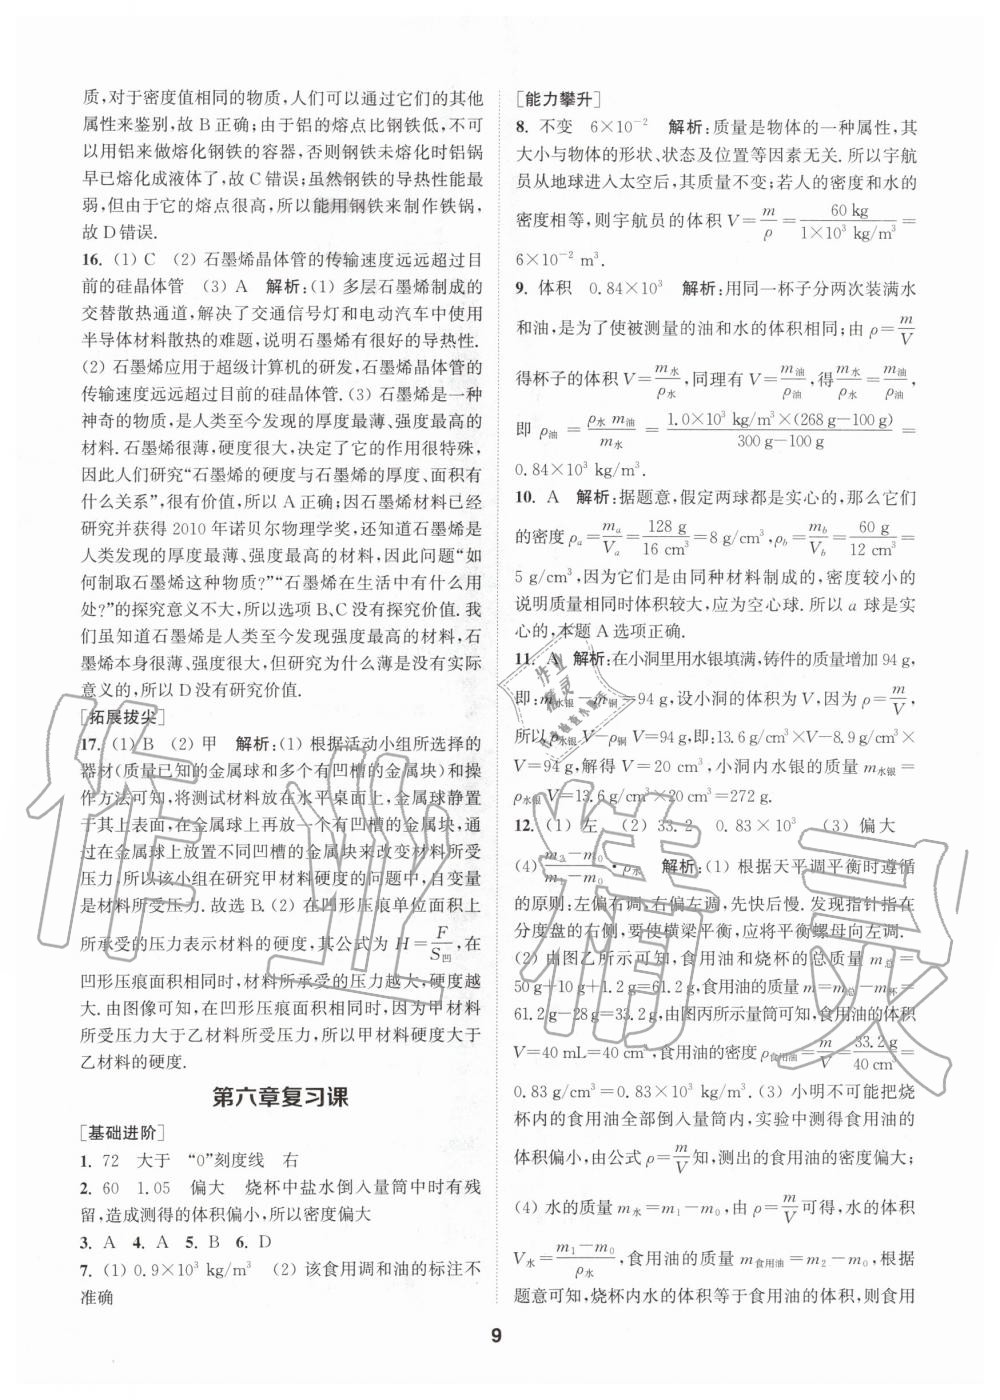 质,对于密度值相同的物质,人们可以通过它们的其他
属性来鉴别,故 B 正确;由于铝的熔点比钢铁低,不可
以用铝来做熔化钢铁的容器,否则钢铁未熔化时铝锅
早已熔化成液体了,故 C 错误;虽然钢铁的导热性能最
弱,但由于它的熔点很高,所以能用钢铁来制作铁锅,
故 D 错误.
16. (1) C (2) 石墨烯晶体管的传输速度远远超过目
前的硅晶体管 (3) A 解析:(1) 多层石墨烯制成的
交替散热通道,解决了交通信号灯和电动汽车中使用
半导体材料散热的难题,说明石墨烯有很好的导热性.
(2) 石墨烯应用于超级计算机的研发,石墨烯晶体管的
传输速度远远超过目前的硅晶体管.(3) 石墨烯是一种
神奇的物质,是人类至今发现的厚度最薄、强度最高的
材料.石墨烯很薄,硬度很大,决定了它的作用很特殊,
因此人们研究“石墨烯的硬度与石墨烯的厚度、面积有
什么关系”,很有价值,所以 A 正确;因石墨烯材料已经
研究并获得 2010 年诺贝尔物理学奖,还知道石墨烯是
人类发现的厚度最薄、强度最高的材料,因此问题“如
何制取石墨烯这种物质?”“石墨烯在生活中有什么用
处?”的探究意义不大,所以选项 B、C 没有探究价值.我
们虽知道石墨烯是人类至今发现强度最高的材料,石
墨烯本身很薄、强度很高,但研究为什么薄是没有实际
意义的,所以 D 没有研究价值.
[拓展拔尖]
17. (1) B (2) 甲 解析:(1) 根据活动小组所选择的
器材(质量已知的金属球和多个有凹槽的金属块)和操
作方法可知,将测试材料放在水平桌面上,金属球静置
于其上表面,在金属球上再放一个有凹槽的金属块,通
过在金属球上放置不同凹槽的金属块来改变材料所受
压力,所以该小组在研究甲材料硬度的问题中,自变量
是材料所受压力.故选 B.(2) 在凹形压痕单位面积上
所承受的压力表示材料的硬度,其公式为 H=F/S凹,在
凹形压痕面积相同时,材料所承受的压力越大,硬度越
大,由图像可知,在凹形压痕面积相同时,因为甲材料
所受压力大于乙材料所受压力,所以甲材料硬度大于
乙材料的硬度.
第六章复习课
[基础进阶]
1. 72 大于 “0”刻度线 右
2. 60 1.05 偏大 烧杯中盐水倒入量筒中时有残
留,造成测得的体积偏小,所以密度偏大
3. A 4. A 5. B 6. D
7. (1) 0.9×10³ kg/m³ (2) 该食用调和油的标注不
准确
[能力攀升]
8. 不变 6×10⁻² 解析:质量是物体的一种属性,其
大小与物体的形状、状态及位置等因素无关.所以宇航
员从地球进入太空后,其质量不变;若人的密度和水的
密度相等,则宇航员的体积 V=m/ρ=60 kg/(1×10³ kg/m³)=
6×10⁻² m³.
9. 体积 0.84×10³ 解析:用同一杯子分两次装满水
和油,是为了使被测量的油和水的体积相同;由 ρ=m/V
得杯子的体积 V=m水/ρ水,同理有 V=m油/ρ油,得m水/ρ水=m油/ρ油,
即 ρ油=ρ水 m油/m水=1.0×10³ kg/m³×(268 g−100 g)/(300 g−100 g)=
0.84×10³ kg/m³.
10. A 解析:据题意,假定两球都是实心的,那么它们
的密度 ρa=ma/Va=128 g/16 cm³=8 g/cm³,ρb=mb/Vb=60 g/12 cm³=
5 g/cm³,因为它们是由同种材料制成的,密度较小的
说明质量相同时体积较大,应为空心球.所以 a 球是实
心的,本题 A 选项正确.
11. A 解析:在小洞里用水银填满,铸件的质量增加 94 g,
即:m水银−m铜=94 g,设小洞的体积为 V,因为 ρ=m/V,
所以ρ水银 V−ρ铜 V=94 g,即:13.6 g/cm³×V−8.9 g/cm³×
V=94 g,解得 V=20 cm³,小洞内水银的质量 m水银=
ρ水银V=13.6 g/cm³×20 cm³=272 g.
12. (1) 左 (2) 33.2 0.83×10³ (3) 偏大
(4) (m₂−m₀)/(m₁−m₀)·ρ水 解析:(1) 根据天平调平衡时遵循
的原则:左偏右调、右偏左调,先快后慢.发现指针指在
分度盘的右侧,要使横梁平衡,应将平衡螺母向左调.
(2) 由图乙所示可知,食用油和烧杯的总质量 m总=
50 g+10 g+1.2 g=61.2 g,食用油的质量 m=m总−m杯=
61.2 g−28 g=33.2 g,由图丙所示量筒可知,食用油的体积
V=40 mL=40 cm³,食用油的密度 ρ食用油=m/V=33.2 g/40 cm³=
0.83 g/cm³=0.83×10³ kg/m³.(3) 小明不可能把烧
杯内的食用油全部倒入量筒内,实验中测得食用油的
体积偏小,由公式 ρ=m/V知,测出的食用油的密度偏大;
(4) 水的质量 m水=m₁−m₀,由 ρ=m/V可得,水的体积
V水=(m₁−m₀)/ρ水,食用油的质量 m食用油=m₂−m₀,根据
题意可知,烧杯内水的体积等于食用油的体积,则食用
9
作业精灵